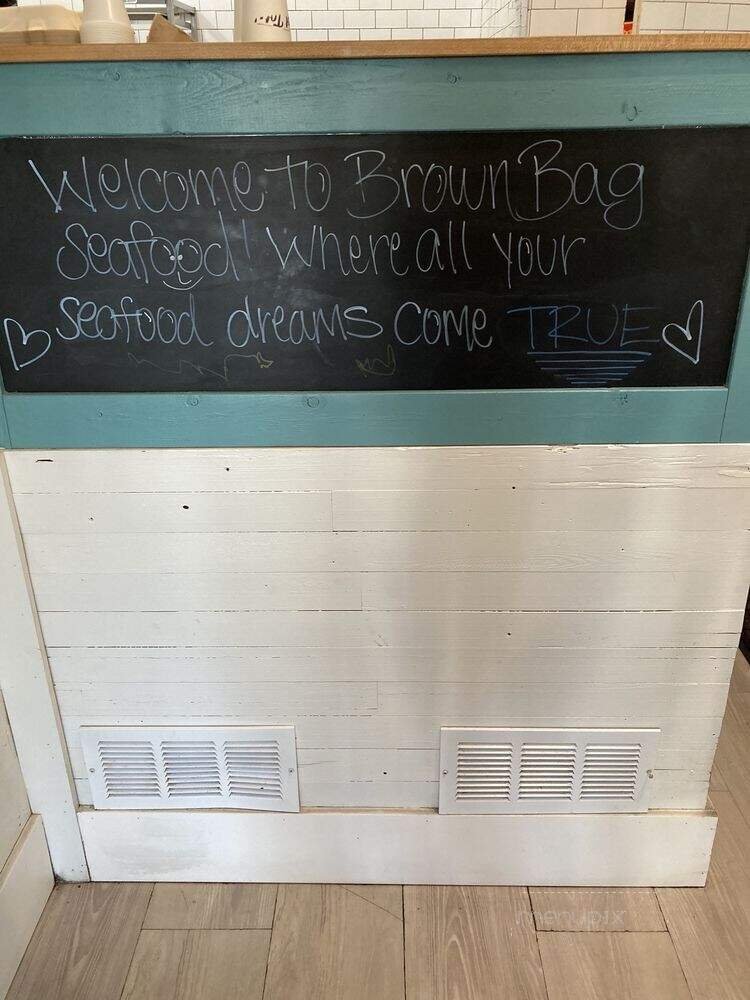 Welcome to Brown Bag
Seafood! Where all your
seafood dreams come TRUE
menupix